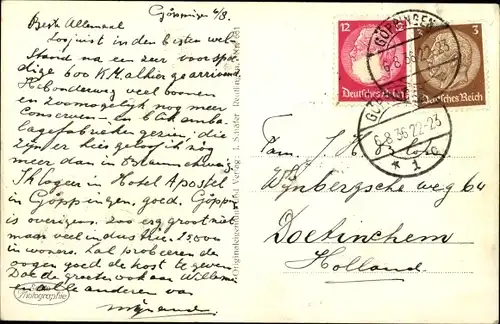 Göppingen 6/8.
Beste Allemaal
Zoojuist in den besten wel-
stand na een zeer voorspoe-
dige 600 K.M. alhier gearriveerd
Heb onderweg veel boomen
en zoomogelijk nog meer
Conserven- en blikemba-
lagefabrieken gezien, die
zijn er hier geloof ik nog
meer dan in Braunschweig
Ik logeer in Hotel Apostel
in Göppingen, goed. Göppin
is overigens zoo erg groot niet
maar veel industrie.
inwoners. Zal probeeren de
oogen goed de kost te geven
Doe de groeten ook aan Willem
en alle anderen van
Photographie
Originaleigentum und Verlag: L. Schäfer
12
Deutsches Reich
3
Deutsches Reich
GÖPPINGEN
6-8 36 22-23
GÖPPINGEN
6-8 36 22-23
* 1 c
Fam. J. H.
Wijnbergsche weg 64
Doetinchem
Holland.